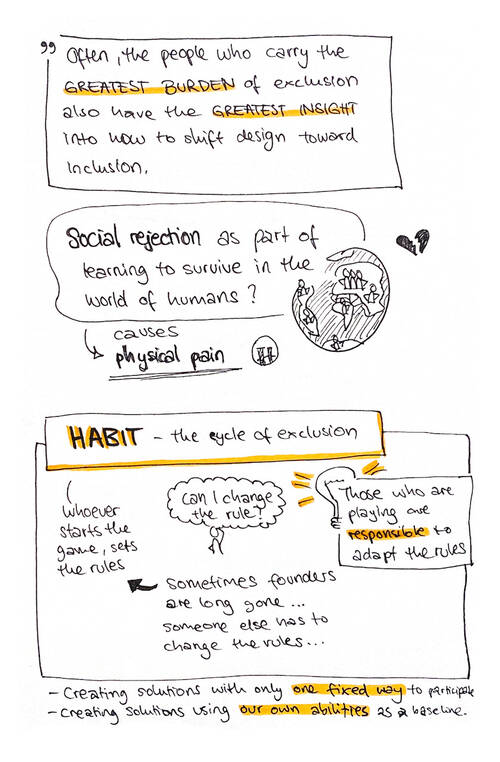 ” Often, the people who carry the
GREATEST BURDEN of exclusion
also have the GREATEST INSIGHT
into how to shift design toward
inclusion.
Social rejection as part of
learning to survive in the
world of humans?
causes
physical pain
HABIT - the cycle of exclusion
whoever
starts the
game, sets
the rules
Can I change
the rule?
Those who are
playing are
responsible to
adapt the rules
sometimes founders
are long gone ...
someone else has to
change the rules...
- Creating solutions with only one fixed way to participate
- Creating solutions using our own abilities as a baseline.